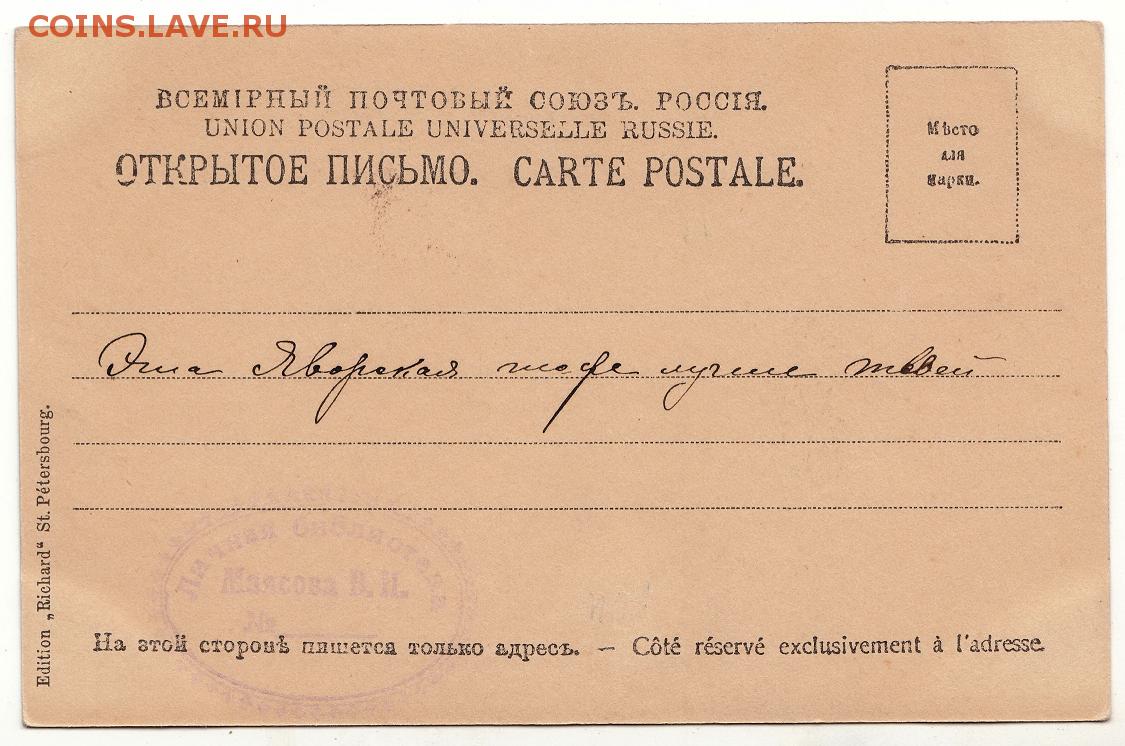 COINS.LAVE.RU
ВСЕМІРНЫЙ ПОЧТОВЫЙ СОЮЗЪ. РОССІЯ.
UNION POSTALE UNIVERSELLE RUSSIE.
ОТКРЫТОЕ ПИСЬМО. CARTE POSTALE.
Мѣсто
для
марки.
Эта Яворская тоже лучше твоей
Edition „Richard“ St. Pétersbourg.
Личная библиотека
Маясова В. И.
№
На этой сторонѣ пишется только адресъ. — Côté réservé exclusivement à l'adresse.